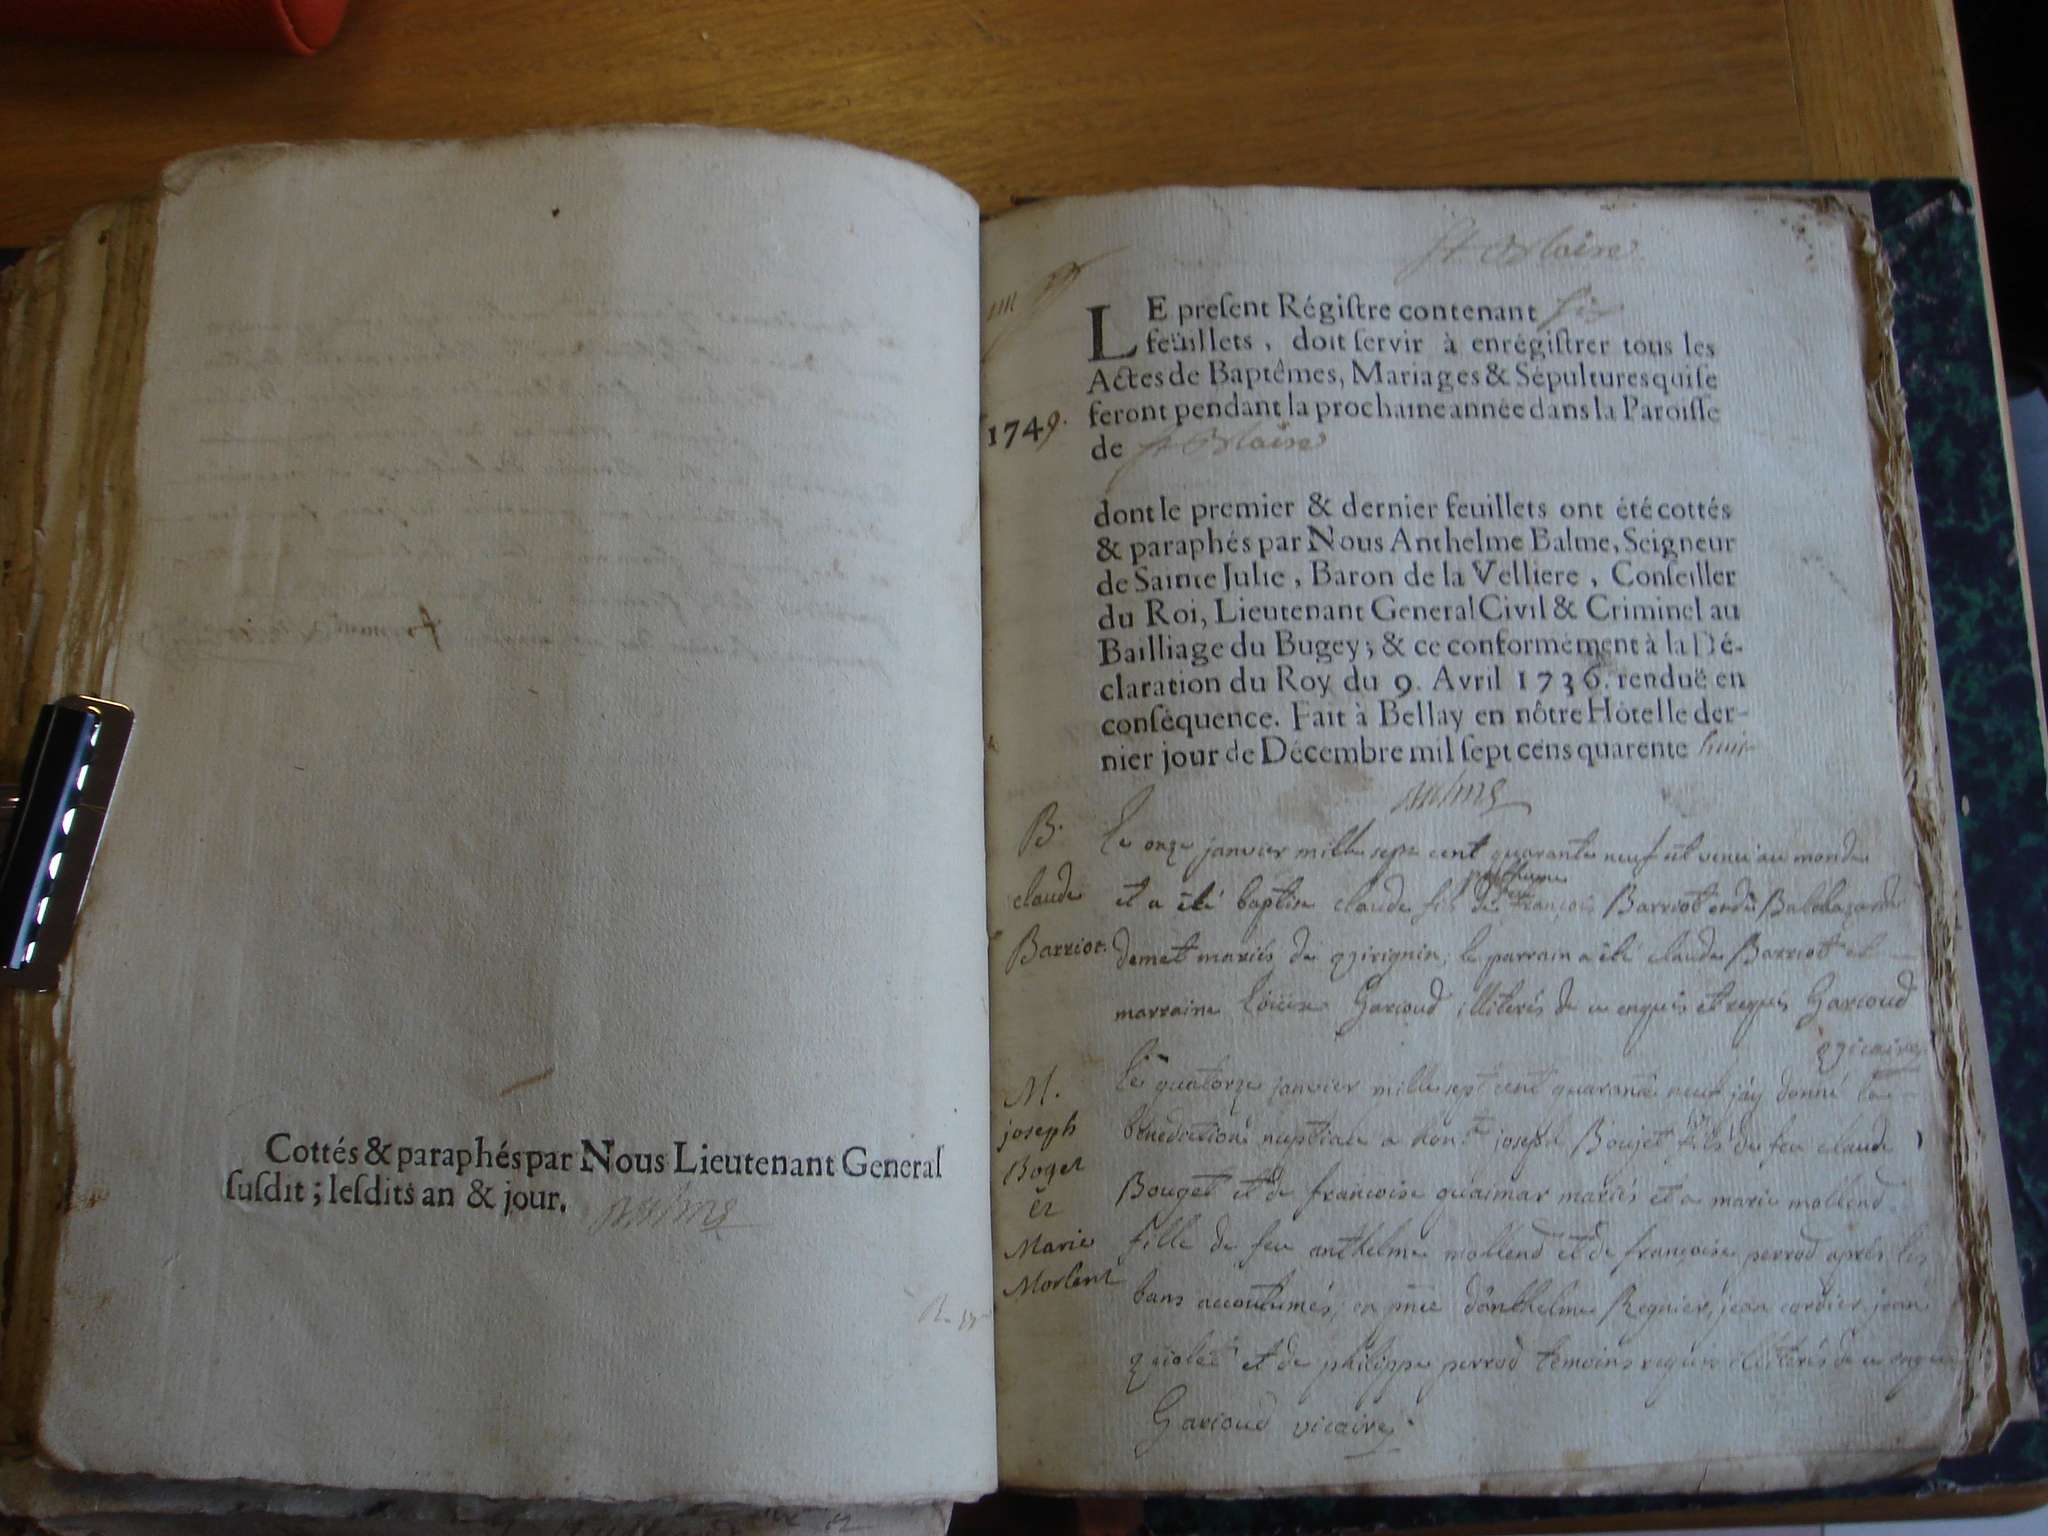 Cottés & paraphés par Nous Lieutenant General
susdit ; lesdits an & jour.
St Blaise
LE present Régistre contenant six
feüillets, doit servir à enrégistrer tous les
Actes de Baptêmes, Mariages & Sépultures qui se
feront pendant la prochaine année dans la Paroisse
1749.
de St Blaise
dont le premier & dernier feuillets ont été cottés
& paraphés par Nous Anthelme Balme, Seigneur
de Sainte Julie, Baron de la Velliere, Conseiller
du Roi, Lieutenant General Civil & Criminel au
Bailliage du Bugey; & ce conformément à la Dé-
claration du Roy du 9. Avril 1736. renduë en
conséquence. Fait à Bellay en nôtre Hôtel le der-
nier jour de Décembre mil sept cens quarente huit
B.
claude
Barriot.
le onze janvier mille sept cent quarante neuf est venu au monde
et a été baptisé claude fils posthume de feu françois Barriot et de Balthazarde
demet mariés de virignin, le parrain a été claude Barriot et
marraine Garioud illiterés de ce enquis et requis Garioud
vicaire
M.
joseph
Boget
et
Marie
Morlent
le quatorze janvier mille sept cent quarante neuf j'ay donné la
bénédiction nuptiale a hon. joseph Boujet fils de feu claude
Bouget et de francoise quaimar mariés et a marie mollend
fille de feu anthelme mollend et de françoise perrod après les
bans accoutumés, en d'anthelme Regnier, jean cordier, jean
violet et de philippe perrod temoins requis illiterés de ce enquis
Garioud vicaire